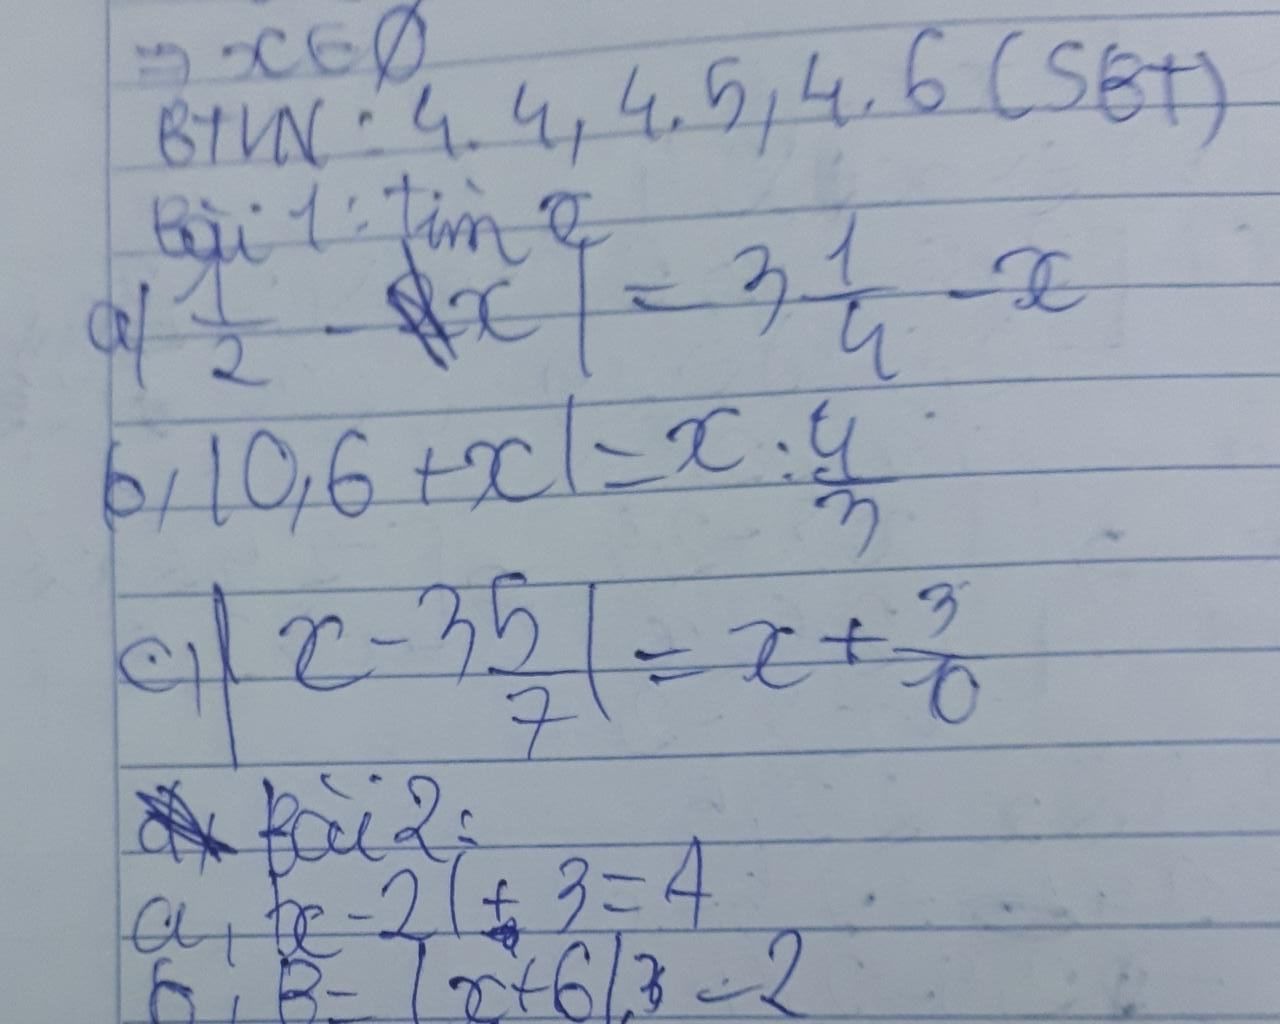 => x ∈ Ø
BTVN: 4.4, 4.5, 4.6 (SBT)
Bài 1: tìm x
a) 1/2 - x| = 3 1/4 - x
b, |0,6 + x| = x : 4/3
c, |x - 3 5/7| = x + 3/10
Bài 2:
a, |x - 2| + 3 = 4
b, B = |x + 6| - 2